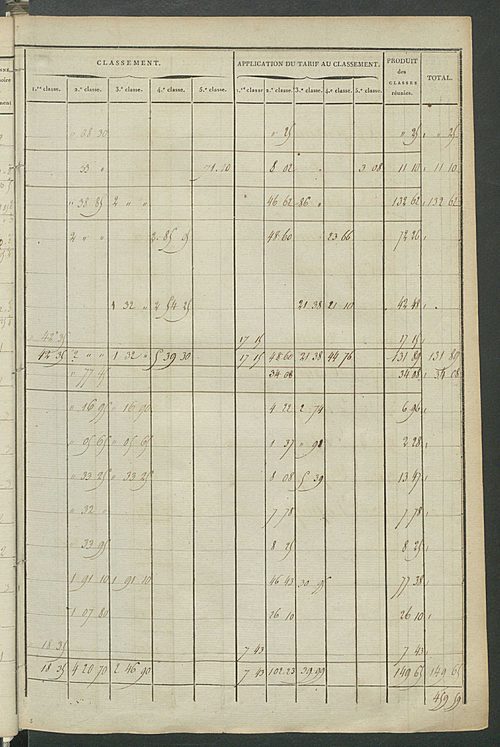 CLASSEMENT. APPLICATION DU TARIF AU CLASSEMENT. PRODUIT des CLASSES réunies. TOTAL.
1.re classe. 2.e classe. 3.e classe. 4.e classe. 5.e classe. 1.re classe 2.e classe. 3.e classe. 4.e classe. 5.e classe.
" 08 30 " 25 " 25 " 25
33 " 71.10 8 02 " 3 08 11 10 11 10
" 38 85 2 " " 46 62 86 " 132 62 132 62
2 " " 2. 85 48 60 23 66 72 26
1 32 " 2 54 25 21 38 21 10 42 48
42 35 17 15 17 15
42 35 2 " " 1 32 " 5 39 30 17 15 48 60 21 38 44 76 131 89 131 89
" 77 34 08 34 08 34 08
" 16 95 " 16 90 4 22 2 74 6 96
" 05 65 " 05 65 1 37 " 92 2 28
" 33 25 " 33 25 8 08 5 39 13 47
" 32 " 7 78 7 78
" 33 95 8 25 8 25
1 91 10 1 91 10 46 43 30 95 77 38
1 07 80 26 10 26 10
18 35 7 43 7 43
18 35 4 20 70 2 46 90 7 43 102.23 39.99 149 65 149 65
459 59